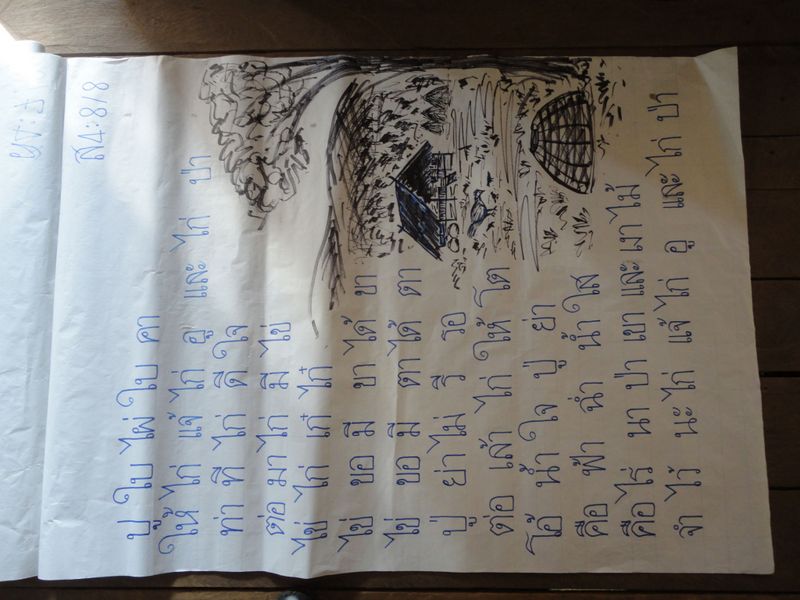 ส4:8/8
ปู ใบ ไผ่ ใบ คา
ให้ ไก่ แจ้ ไก่ อู และ ไก่ ป่า
ท่า ที ไก่ ดี ใจ
ต่อ มา ไก่ มี ไข่
ไข่ ไก่ เก๋ ไก๋
ไข่ ขอ มี ขา ได้ ขา
ไข่ ขอ มี ตา ได้ ตา
ปู่ ย่า ไม่ รี รอ
ต่อ เล้า ไก่ ให้ โต
โอ้ น้ำ ใจ ปู่ ย่า
คือ ฟ้า ฉ่ำ น้ำ ใส
คือ ไร่ นา ป่า เขา และ เงา ไม้
จำ ไว้ นะ ไก่ แจ้ ไก่ อู และ ไก่ ป่า